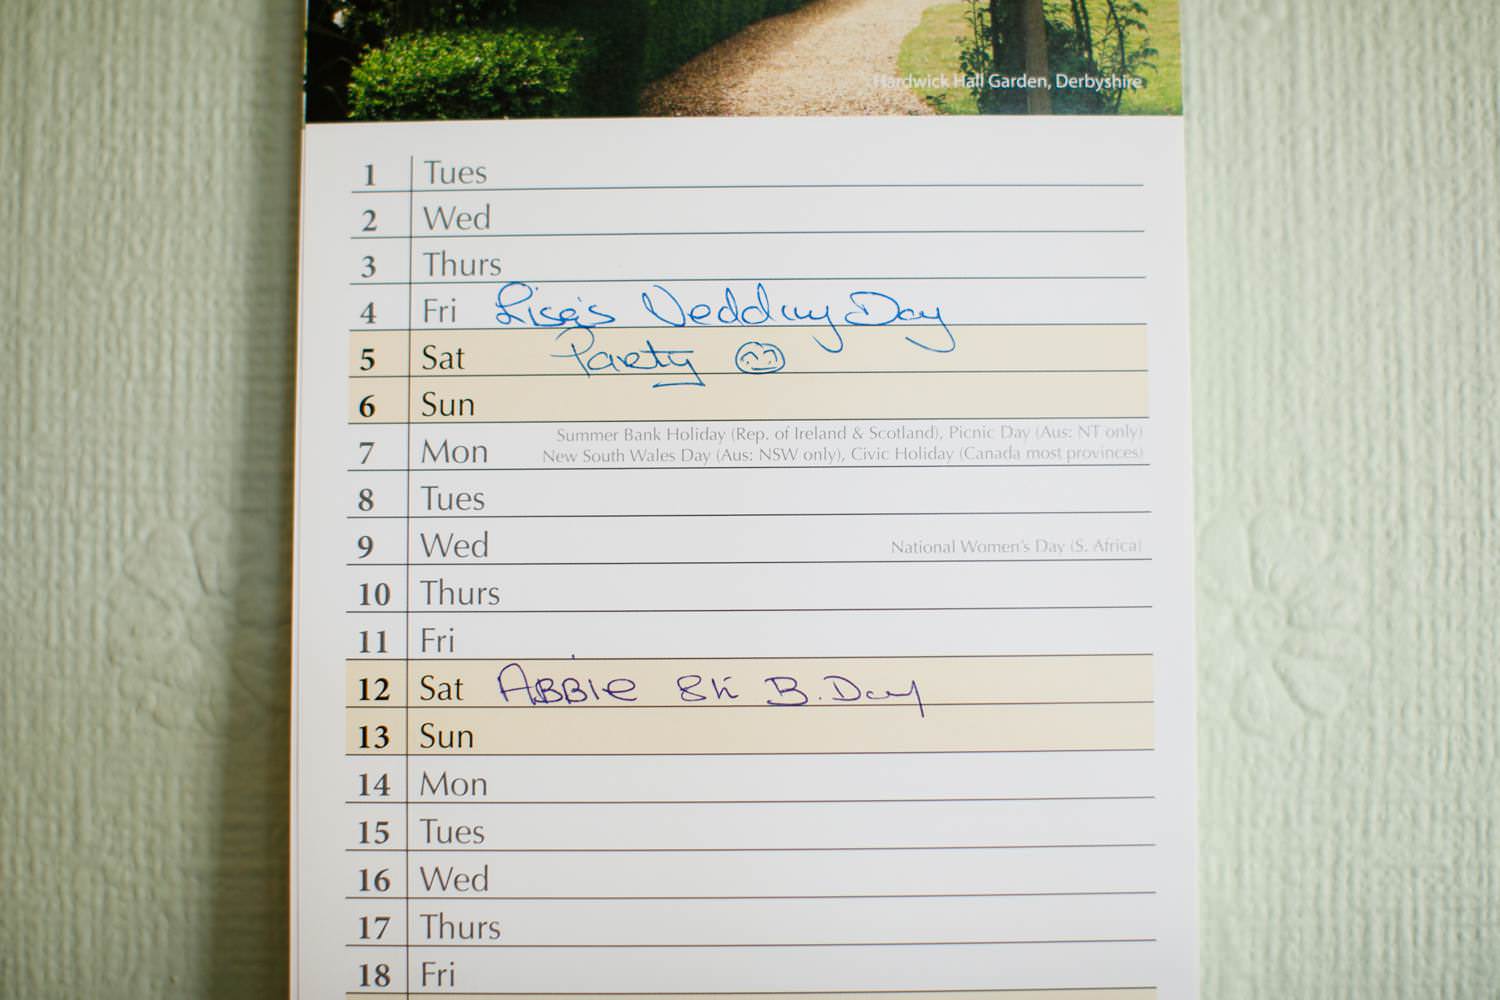 Hardwick Hall Garden, Derbyshire
1 Tues
2 Wed
3 Thurs
4 Fri Lisa's Wedding Day
5 Sat Party
6 Sun
7 Mon Summer Bank Holiday (Rep. of Ireland & Scotland), Picnic Day (Aus: NT only)
New South Wales Day (Aus: NSW only), Civic Holiday (Canada most provinces)
8 Tues
9 Wed National Women's Day (S. Africa)
10 Thurs
11 Fri
12 Sat ABBIE 8th B.Day
13 Sun
14 Mon
15 Tues
16 Wed
17 Thurs
18 Fri